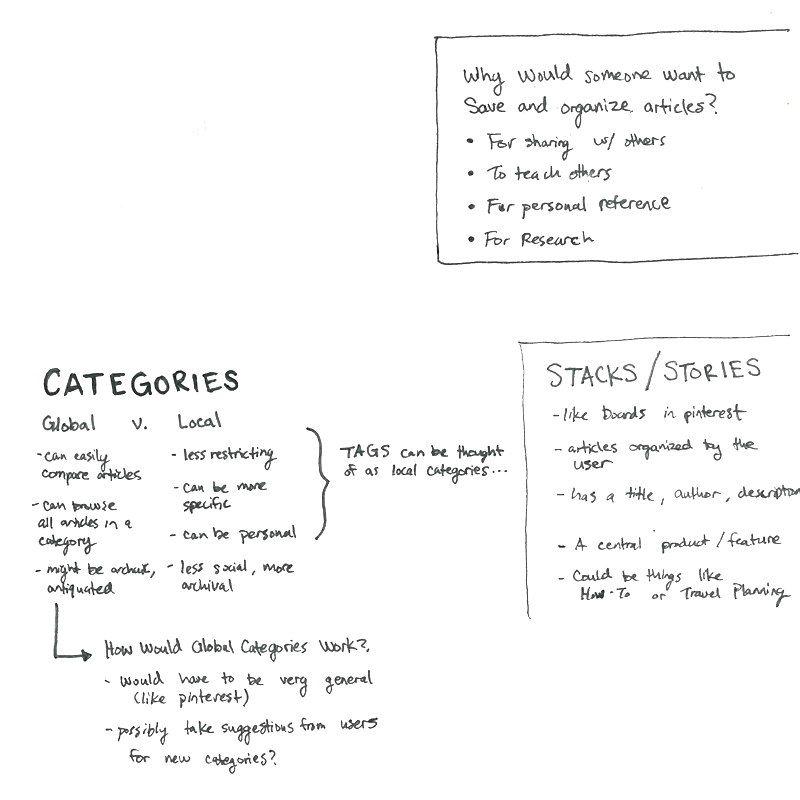 Why Would someone want to
Save and organize articles?
• For sharing w/ others
• To teach others
• For personal reference
• For Research
CATEGORIES
Global v. Local
- can easily
compare articles
- can browse
all articles in a
category
- might be archaic,
antiquated
- less restricting
- can be more
specific
- can be personal
- less social, more
archival
TAGS can be thought
of as local categories...
How Would Global Categories Work?
- would have to be very general
(like pinterest)
- possibly take suggestions from users
for new categories?
STACKS/STORIES
- like boards in pinterest
- articles organized by the
user
- has a title, author, description
- A central product/feature
- Could be things like
How-To or Travel Planning